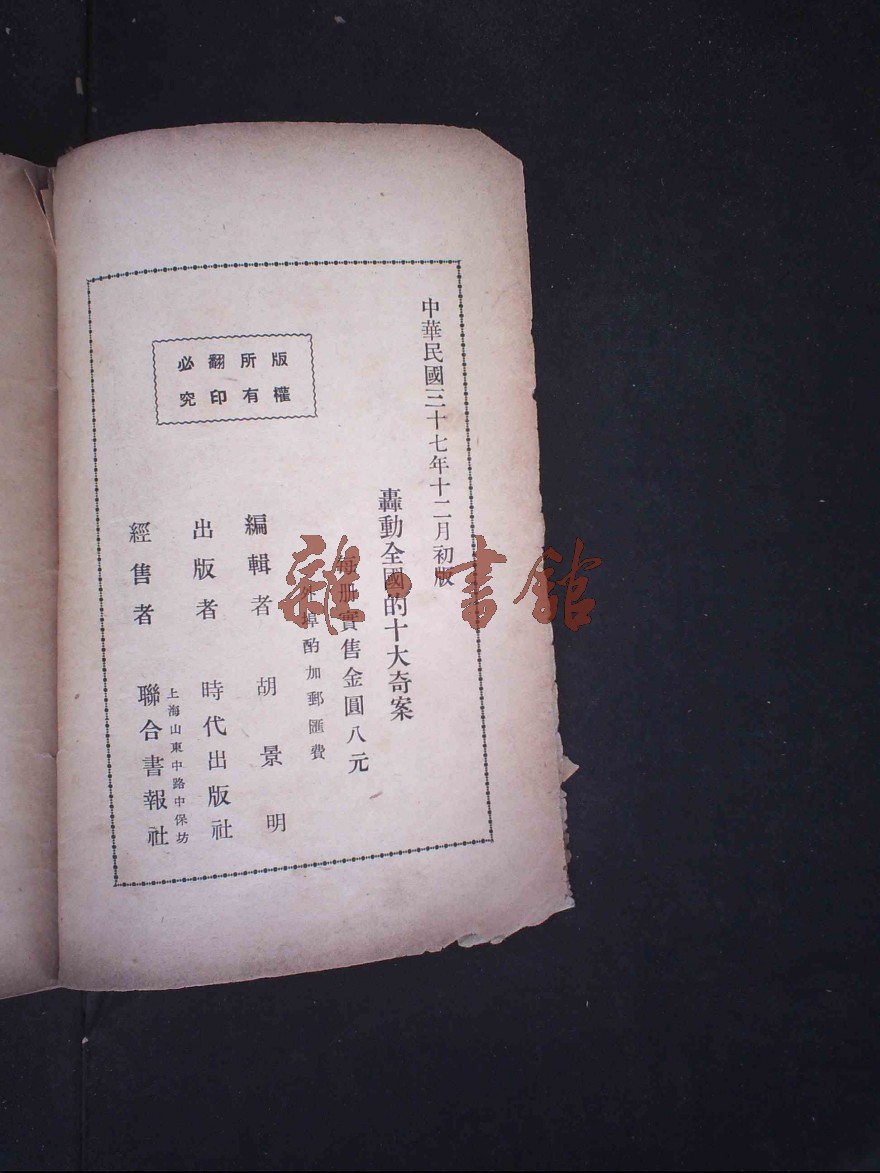 中華民國三十七年十二月初版
轟動全國的十大奇案
每册實售金圓八元
外埠酌加郵匯費
編輯者 胡景明
出版者 時代出版社
上海山東中路中保坊
經售者 聯合書報社
版權
所有
翻印
必究
雜·書館